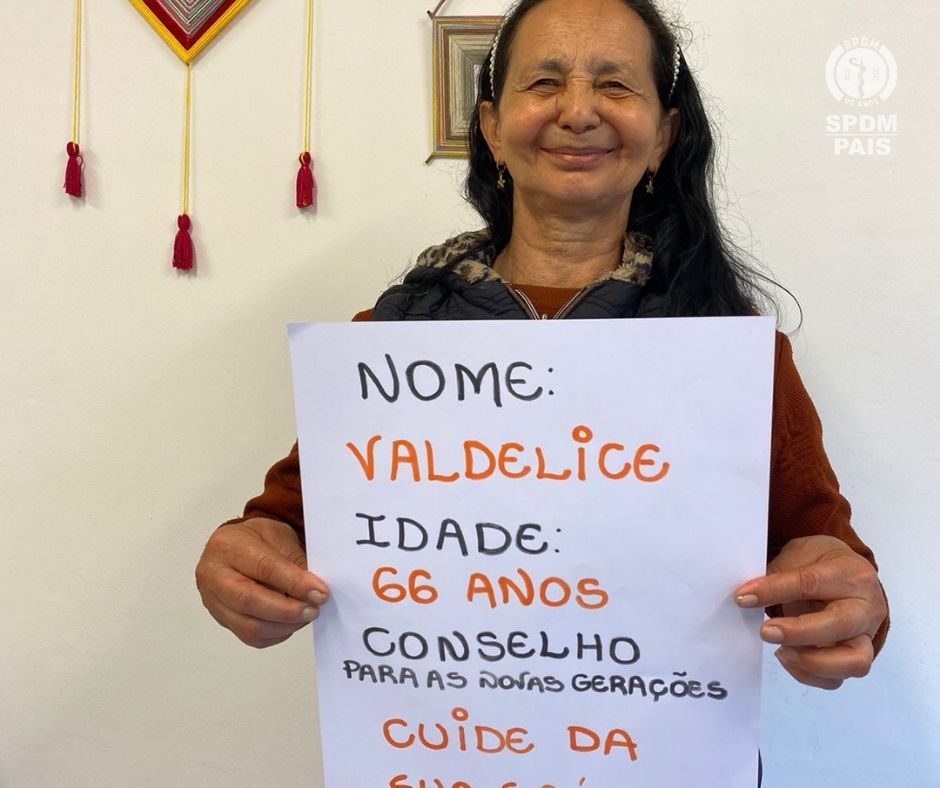 SPDM
90 ANOS
SPDM
PAIS
NOME:
VALDELICE
IDADE:
66 ANOS
CONSELHO
PARA AS NOVAS GERAÇÕES
CUIDE DA